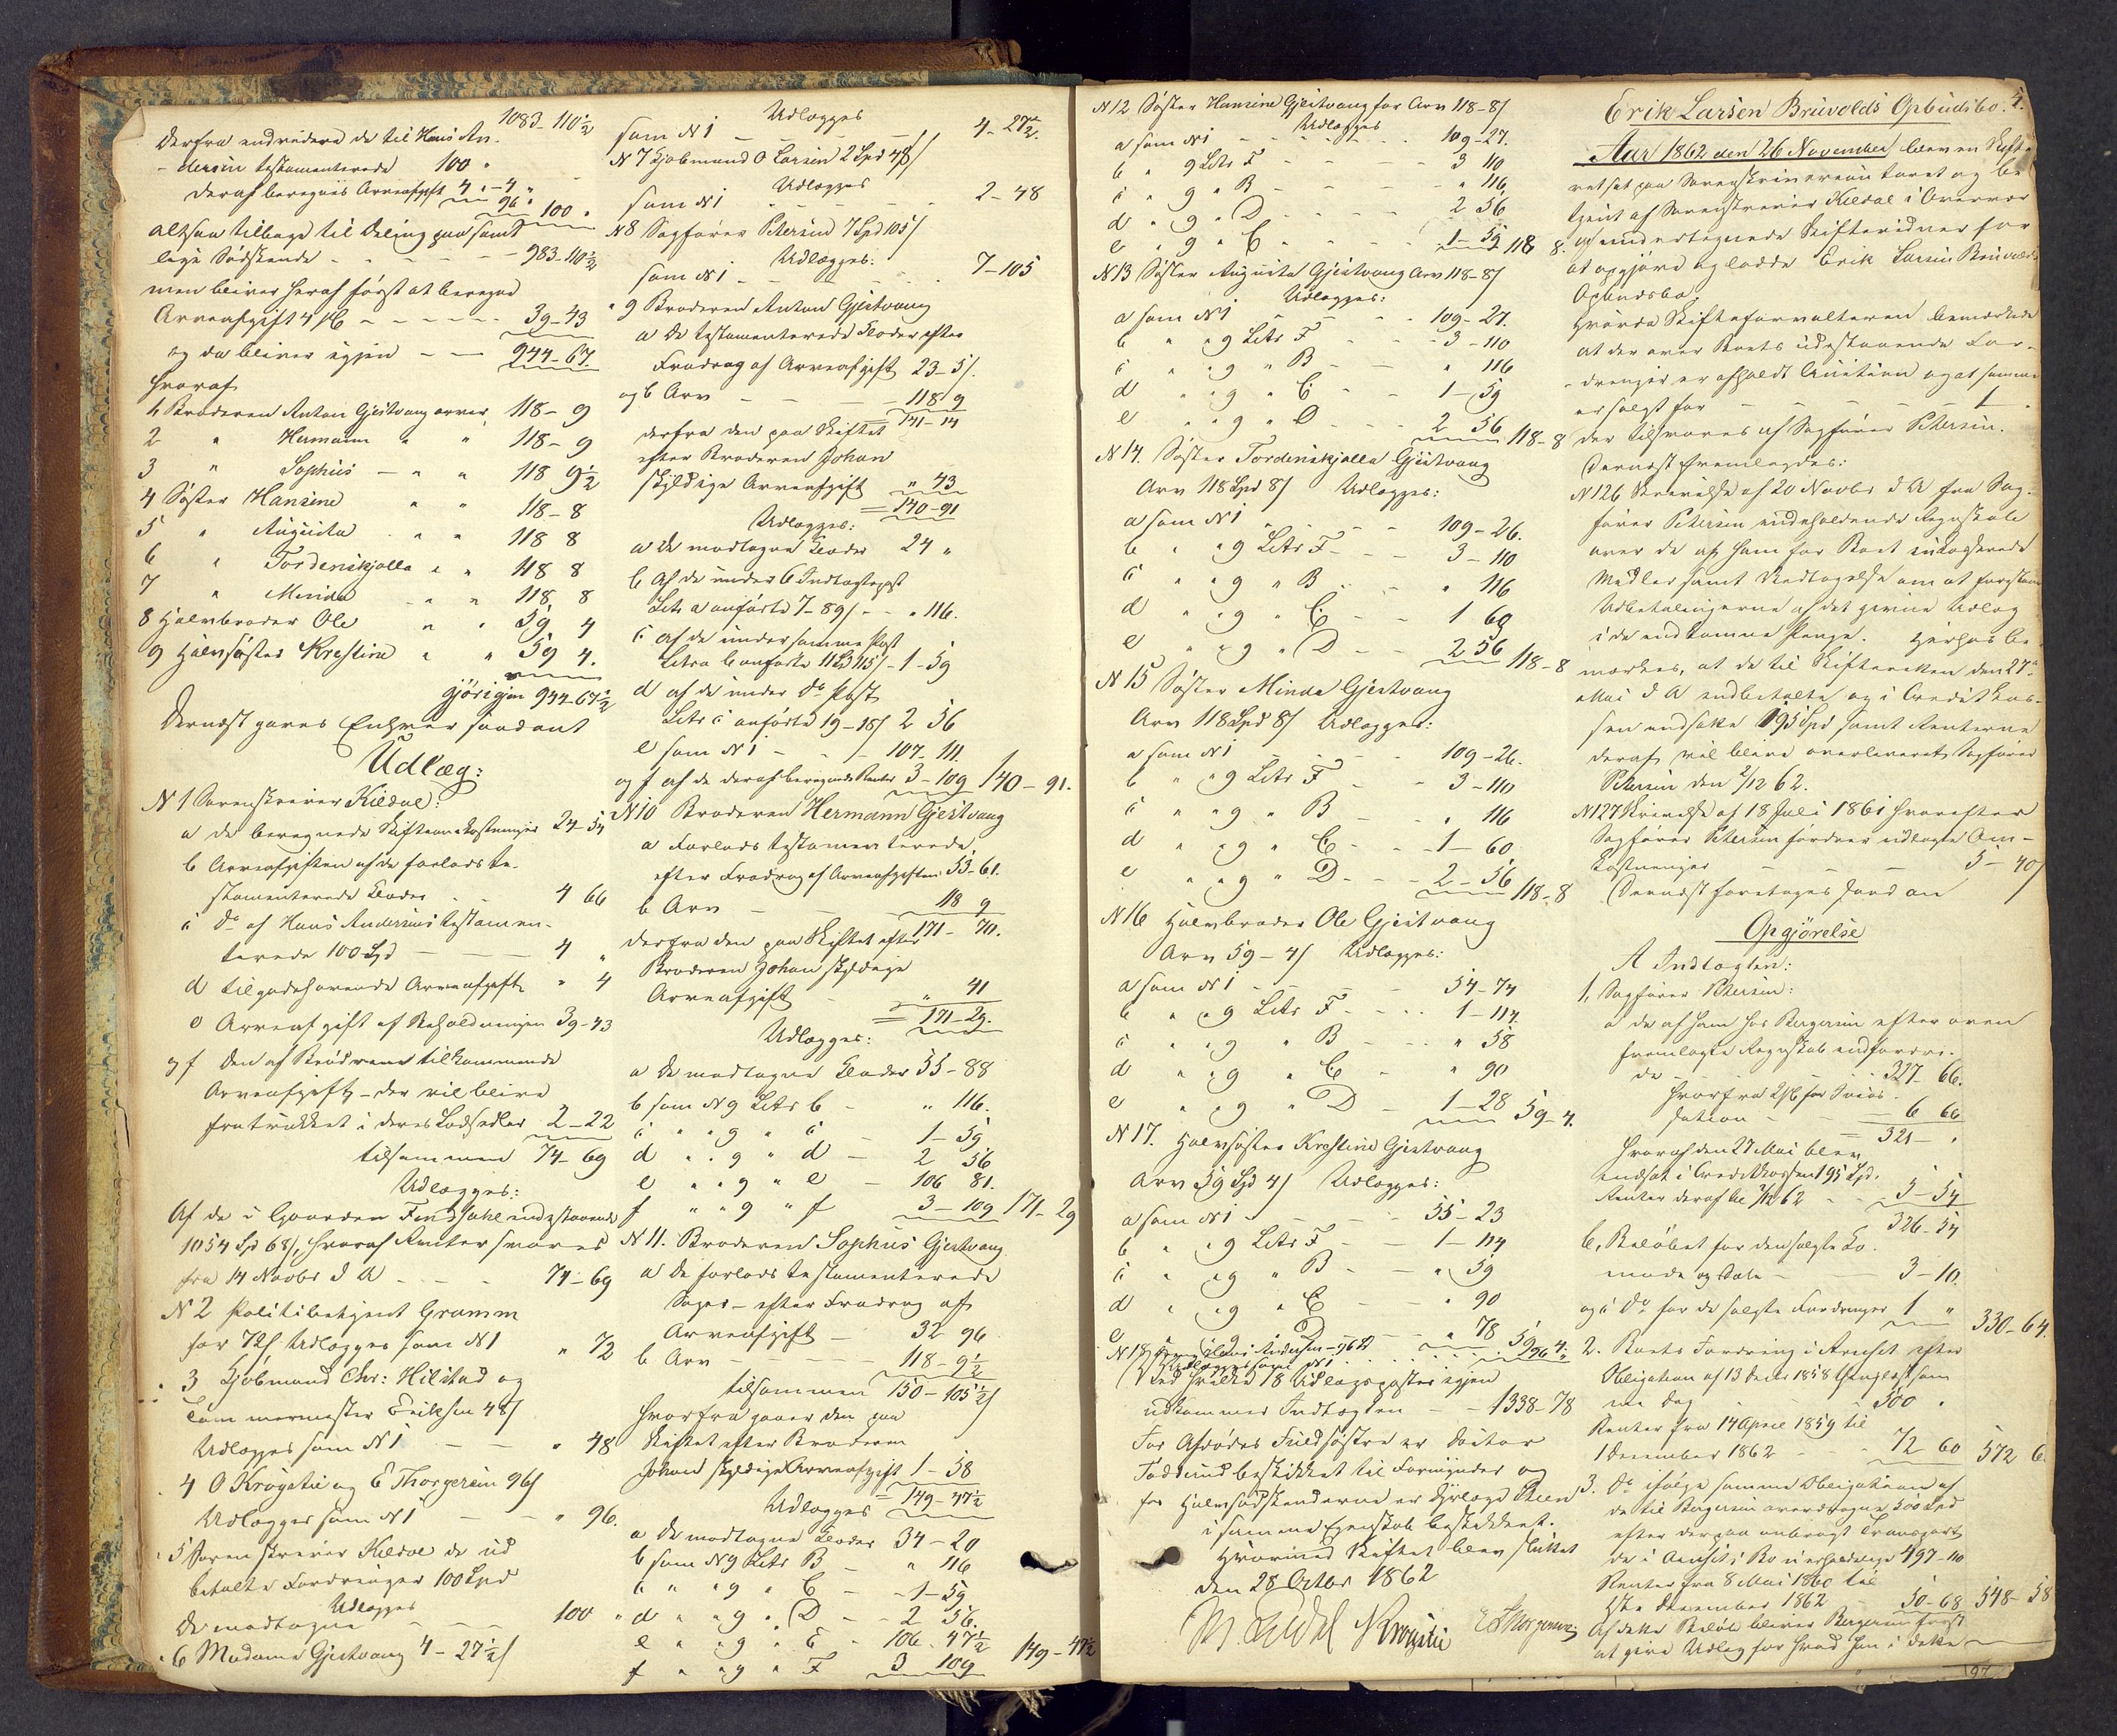 1083-110½
Derfra endvidere de til Hans An-
dersen testamenterede 100 "
deraf beregnes Arveafgift 4 "-4 "
96 " 100 "
altsaa tilbage til Deling paa samt
lige Sødskende - - - 983-110½
men bliver heraf først at beregne
Arveafgift 4 pC - - - 39-43
og da bliver igjen - - 944-67½
hvoraf
1, Broderen Anton Gjestvang arver 118-9
2 " Hermann " " 118-9
3 " Sophus - " " 118 9½
4 Søster Hansine " " 118-8
5 " Augusta " " 118 8
6 " Tordenskjolla " " 118 8
7 " Minda " " 118 8
8 Halvbroder Ole " " 59 4
9 Halvsøster Krestine " " 59 4.
gjør igjen 944-67½
Dernæst gjøres Enhver saadant
Udlæg:
N 1 Sorenskriver Kildal:
a de beregnede Skifteomkostninger 24-54
b Arveafgiften af de forlods te-
stamenterede Klæder - 4 66
c do af Hans Andersens testamen-
terede 100 Spd - - - 4 "
d tilgodehavende Arveafgift " 4
e Arveafgift af Beholdningen 39-43
og f den af Brødrene tilkommende
Arveafgift - der vil blive
fratrukket i deres Lodsedler 2-22
tilsammen 74-69
Udlægges:
Af de i Gaarden Findsahl indestaaende
1054 Spd 68/, hvoraf Renter svares
fra 14 Novbr d A - - - 74-69
N 2 Politibetjent Gramm
for 72/ Udlægges som N 1 " 72
" 3 Kjøbmand Chr: Hilstad og
Lommermester Eriksen 48/
Udlægges som N 1 - - " 48
" 4 O Krogstie og E Thorgersen 96/
Udlægges som N 1 - - " 96.
" 5 Sorenskriver Kildal de ud
betalte Fordringer 100 Spd
Udlægges
De modtagne - - - 100 "
" 6 Madame Gjestvang 4-27½/
Udlægges
som N 1 - - - - 4-27½.
N 7 Kjøbmand O Larsen 2 Spd 48/
Udlægges
som N 1 - - - 2-48
N 8 Sagfører Petersen 7 Spd 105/
Udlægges:
som N 1 - - - 7-105
" 9 Broderen Anton Gjestvang
a De testamenterede Klæder efter
Fradrag af Arveafgift 23-5/.
og b Arv - - - 118 9
= 141-14
derfra den paa Skiftet
efter Broderen Johan
skyldige Arveafgift " 43
= 140-91
Udlægges:
a de modtagne Klæder 24 "
b Af de under 6 Indtægtspost
Litr a anførte 7-89/ - - " 116.
c af de under samme Post
Litra b anførte 11 Spd 115/ - 1-59
d af de under do Post
Litr c anførte 19-18/ 2 56
e som N 1 - - - 107-111.
og f af de deraf beregnede Renter 3-109 140-91.
N 10 Broderen Hermann Gjestvang
a Forlods testamenterede
efter Fradrag af Arveafgiften 53-61.
b Arv - - - 118 9
171-70.
derfra den paa Skiftet efter
Broderen Johan skyldige
Arveafgift - - " 41
= 171-29.
Udlægges:
a De modtagne Klæder 55-88
b som N 9 Litr b - " 116.
c " " 9 " c - 1-59
d " " 9 " d - 2 56
e " " 9 " e - 106 81.
f " " 9 " f 3-109 171-29
N 11. Broderen Sophus Gjestvang
a de forlods testamenterede
Sager - efter Fradrag af
Arveafgift - 32 96
b Arv - - - 118-9½
tilsammen 150-105½/
hvorfra gaaer den paa
Skiftet efter Broderen
Johan skyldige Arveafgift 1-58
= 149-47½
Udlægges
a De modtagne Klæder 34-20
b som N 9 Litr B - " 116
c " " 9 " C - - 1-59
d " " 9 " D - - 2 56.
e " " 9 " E - 106-47½
f " " 9 " F 3 109 149-47½
N 12 Søster Hansine Gjestvang for Arv 118-8/
Udlægges
a som N 1 - - - 109-27.
b " 9 Litr F - - 3 110
c " 9 " B - - " 116
d " 9 " D - - 2 56
e " 9 " C - - 1-59 118 8.
N 13 Søster Augusta Gjestvang Arv 118-8/
Udlægges:
a som N 1 - - - 109-27.
b " " 9 Litr F - - 3-110
c " " 9 " B - - " 116
d " " 9 " C - - 1-59
e " " 9 " D - - 2 56 118-8
N 14. Søster Tordenskjolla Gjestvang
Arv 118 Spd 8/ Udlægges:
a som N 1 - - - 109-26.
b " " 9 Litr F - - 3-110
c " " 9 " B - - " 116
d " " 9 " C - - 1 60
e " " 9 " D - - 2 56 118-8
N 15 Søster Minda Gjestvang
Arv 118 Spd 8/ Udlægges:
a som N 1 - - - 109-26.
b " " 9 Litr F - 3-110
c " " 9 " B - - " 116
d " " 9 " C - - 1-60
e " " 9 " D - - 2-56 118-8
N 16 Halvbroder Ole Gjestvang
Arv 59-4/ Udlægges:
a som N 1 - - - 54-74
b " " 9 Litr F - - 1-114.
c " " 9 " B - - " 58
d " " 9 " C - " 90
e " " 9 " D - 1-28 59-4.
N 17. Halvsøster Krestine Gjestvang
Arv 59 Spd 4/ Udlægges:
a som N 1 - - - 55-23
b " " 9 Litr F - - 1-114
c " " 9 " B - - " 59
d " " 9 " C - - " 90
e " D - " 78 59 4.
N 18 Hans Andersen - 96 Spd
Udlægges som N 1 - - - 96 "
Ved hvilke 18 Udlægsposter igjen
udkommer Indtægten - - 1338-78
For Afdødes Fuldsøstre er Doctor
Todsund beskikket til Formynder og
for Halvsødskenderne er Steen
i samme Egenskab beskikket.
Hvormed Skiftet blev sluttet
den 28 Octbr 1862
Krogstie E Thorgersen
4.
Erik Larsen Brüvolds Opbudsbo.
Aar 1862 den 26 November blev en Skifte-
ret sat paa Sorenskriverens Contoret og be-
tjent af Sorenskriver Kildal i Overvær
af undertegnede Skiftevidner for
at opgjøre og slutte Erik Larsen Brüvolds
Opbudsbo,
hvorda Skifteforvalteren bemærkede
at der over Boets udestaaende For-
dringer er afholdt Auction og at samme
er solgt for - - - - - 1 "
der tilsvares af Sagfører Petersen.
Dernæst fremlagdes:
N 126 Skrivelse af 20 Novbr d A fra Sag-
fører Petersen indeholdende Regnskab
over de af ham for Boet indkasserede
Midler samt Modtagelse om at forestaa
Udbetalingerne af det givne Udlæg
i de indkomne Penge. Herhos be
mærkes, at de til Skifteretten den 27
Mai d A indbetalte og i Creditkas-
sen indsatte 195 Spd samt Renterne
deraf vil blive overleveret Sagfører
Petersen den 2/12 62.
N 127 Skrivelse af 18 Juli 1861 hvorefter
Sagfører Petersen fordrer udlagte Om-
kostninger - - - 5-40/
Dernæst foretoges saadan
Opgjørelse
A Indtægten:
1, Sagfører Petersen:
a de af ham hos Bergersen efter oven
fremlagte Regnskab indfordre-
de - - - 327-66.
hvorfra 2 pC for Incas-
sation - - 6 66
= 321- "
hvoraf den 27 Mai blev
indsat i Creditkassen 195 Spd.
Renter deraf til 2/12 62 - - 5-54
326-54
b, Beløbet for den solgte Ko-
mode og - - - 3-10.
og c do for de solgte Fordringer 1 " 330-64.
2. Boets Fordring i efter
Obligation af 13 Decbr 1858 thinglæst sam
me Dag - - - 500 "
Renter fra 14 April 1859 til
1 December 1862 - - 72 60 572 6.
3. do ifølge samme Obligation af
de til Bergersen overdragne 500 Spd
efter derpaa anbragt Transport
497-110
Renter fra 8 Mai 1860 til
1ste December 1862 - 50-68 548-58
Af dette Beløb bliver Bergersen først
at give Udlæg for hvad han i dette